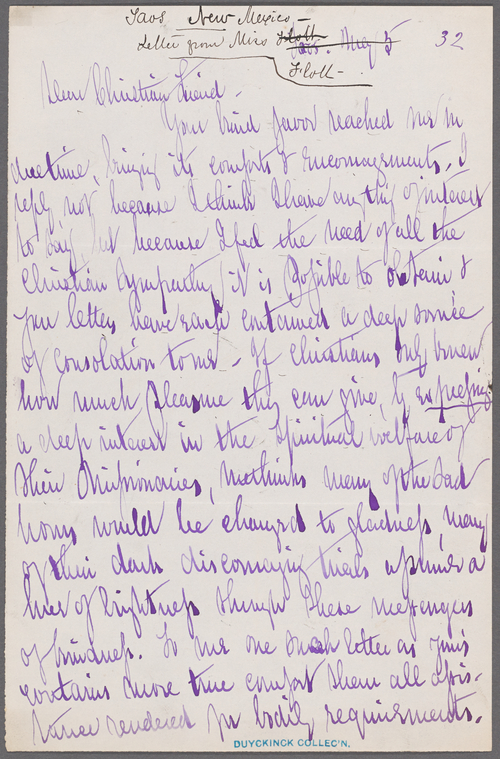 Taos New Mexico -
Letter from Miss Flott
Taos. Aug 5
32
Flott -
Dear Christian Friend -
Your kind favor reached me in
due time, bringing its comforts & encouragements. I
reply not because I think I have any thing of interest
to say but because I feel the need of all the
Christian Sympathy it is possible to obtain &
your letters have each contained a deep source
of consolation to me - If Christians only knew
how much pleasure they can give, by expressing
a deep interest in the Spiritual welfare of
their Missionaries, methinks many of the sad
hours would be changed to gladness, many
of their dark discouraging trials assume a
hue of brightness through these messengers
of kindness. To me one such letter as yours
contains more true comfort than all assis-
tance rendered for bodily requirements.
DUYCKINCK COLLEC'N.